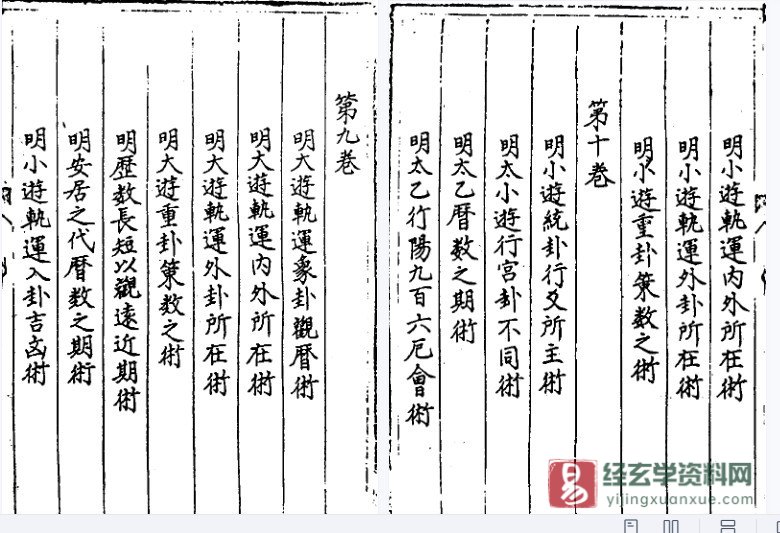 第九卷
明大遊軌運象卦觀曆術
明大遊軌運内外所在術
明大遊軌運外卦所在術
明大遊重卦策数之術
明歷数長短以觀遠近期術
明安居之代曆数之期術
明小遊軌運入卦吉凶術
明小遊軌運内外所在術
明小遊軌運外卦所在術
明小遊重卦策数之術
第十卷
明小遊統卦行爻所主術
明太小遊行宮卦不同術
明太乙曆数之期術
明太乙行陽九百六厄會術
易 经玄学资料网
yijingxuanxue.com